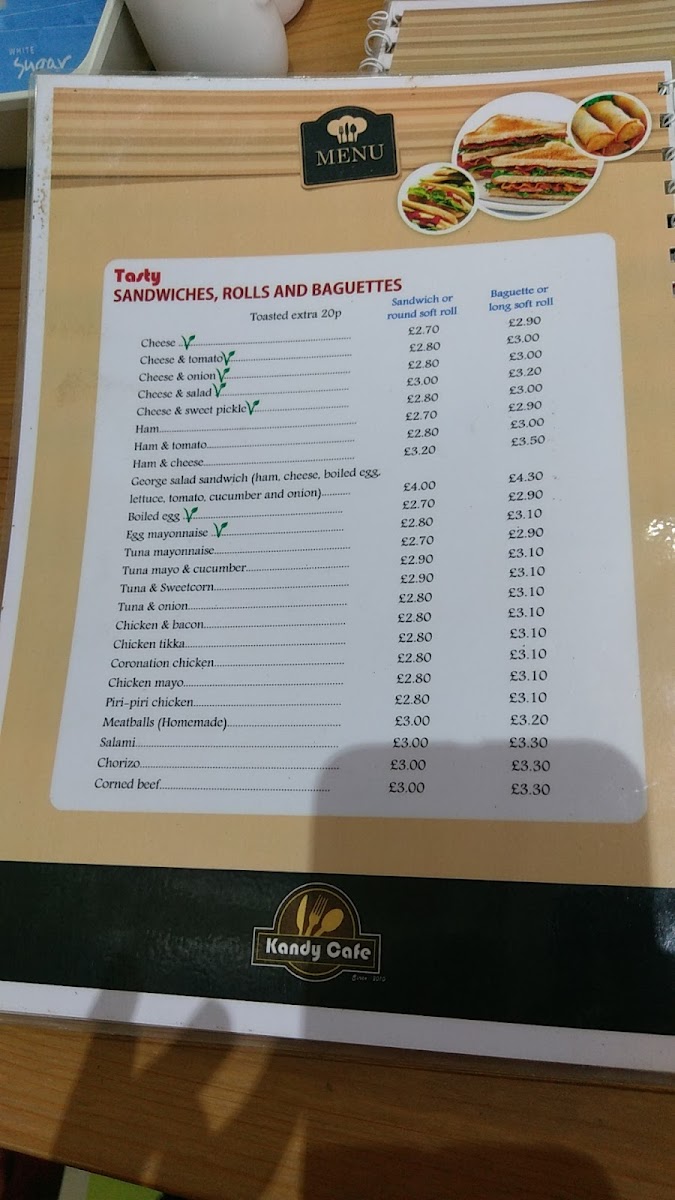 WHITE
Sugar
MENU
Tasty
SANDWICHES, ROLLS AND BAGUETTES
Toasted extra 20p
Sandwich or
round soft roll
Baguette or
long soft roll
Cheese £2.70 £2.90
Cheese & tomato £2.80 £3.00
Cheese & onion £2.80 £3.00
Cheese & salad £3.00 £3.20
Cheese & sweet pickle £2.80 £3.00
Ham £2.70 £2.90
Ham & tomato £2.80 £3.00
Ham & cheese £3.20 £3.50
George salad sandwich (ham, cheese, boiled egg,
lettuce, tomato, cucumber and onion) £4.00 £4.30
Boiled egg £2.70 £2.90
Egg mayonnaise £2.80 £3.10
Tuna mayonnaise £2.70 £2.90
Tuna mayo & cucumber £2.90 £3.10
Tuna & Sweetcorn £2.90 £3.10
Tuna & onion £2.80 £3.10
Chicken & bacon £2.80 £3.10
Chicken tikka £2.80 £3.10
Coronation chicken £2.80 £3.10
Chicken mayo £2.80 £3.10
Piri-piri chicken £2.80 £3.10
Meatballs (Homemade) £3.00 £3.20
Salami £3.00 £3.30
Chorizo £3.00 £3.30
Corned beef £3.00 £3.30
Kandy Cafe